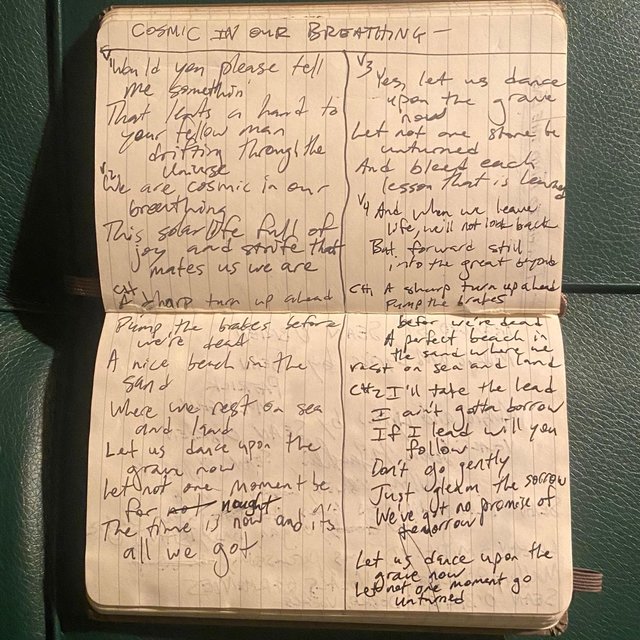 COSMIC IN OUR BREATHING —
V1
Would you please tell
me somethin'
That lends a hand to
your fellow man
drifting through the
universe
V2
We are cosmic in our
breathing
This solar life full of
joy and strife that
makes us we are
CH
A sharp turn up ahead
Pump the brakes before
we're dead
A nice beach in the
sand
Where we rest on sea
and land
Let us dance upon the
grave now
Let not one moment be
for not nought
The time is now and its
all we got
V3
Yes, let us dance
upon the grave
now
Let not one stone be
unturned
And bleed each
lesson that is learned
V4 And when we leave
life, we'll not look back
But forward still
into the great beyond
CH1 A sharp turn up ahead
Pump the brakes
befor we're dead
A perfect beach in
the sand where we
rest on sea and land
CH2 I'll take the lead
I ain't gotta borrow
If I lead will you
follow
Don't go gently
Just the sorrow
We've got no promise of
tomorrow
Let us dance upon the
grave now
Let not one moment go
unturned